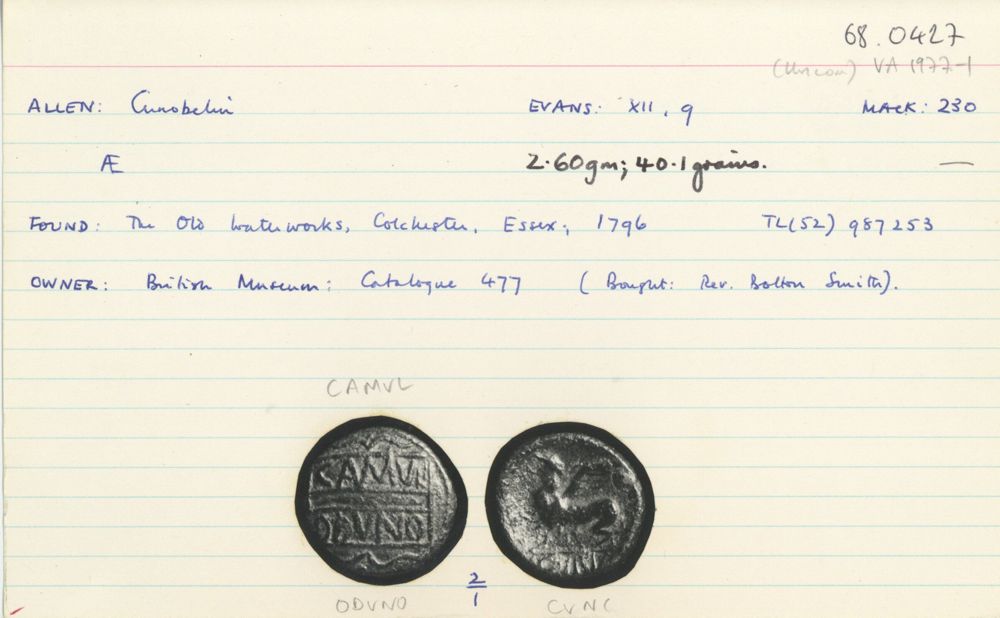 68.0427
(Unicorn) VA 1977-1
ALLEN: Cunobelin EVANS: XII, 9 MACK: 230
Æ 2.60gm; 40.1 grains. —
FOUND: The Old Waterworks, Colchester, Essex; 1796 TL(52) 987253
OWNER: British Museum: Catalogue 477 (Bought: Rev. Bolton Smith).
CAMVL
CAMVL
ODVNO
CVN
2/1
ODVNO CVNC